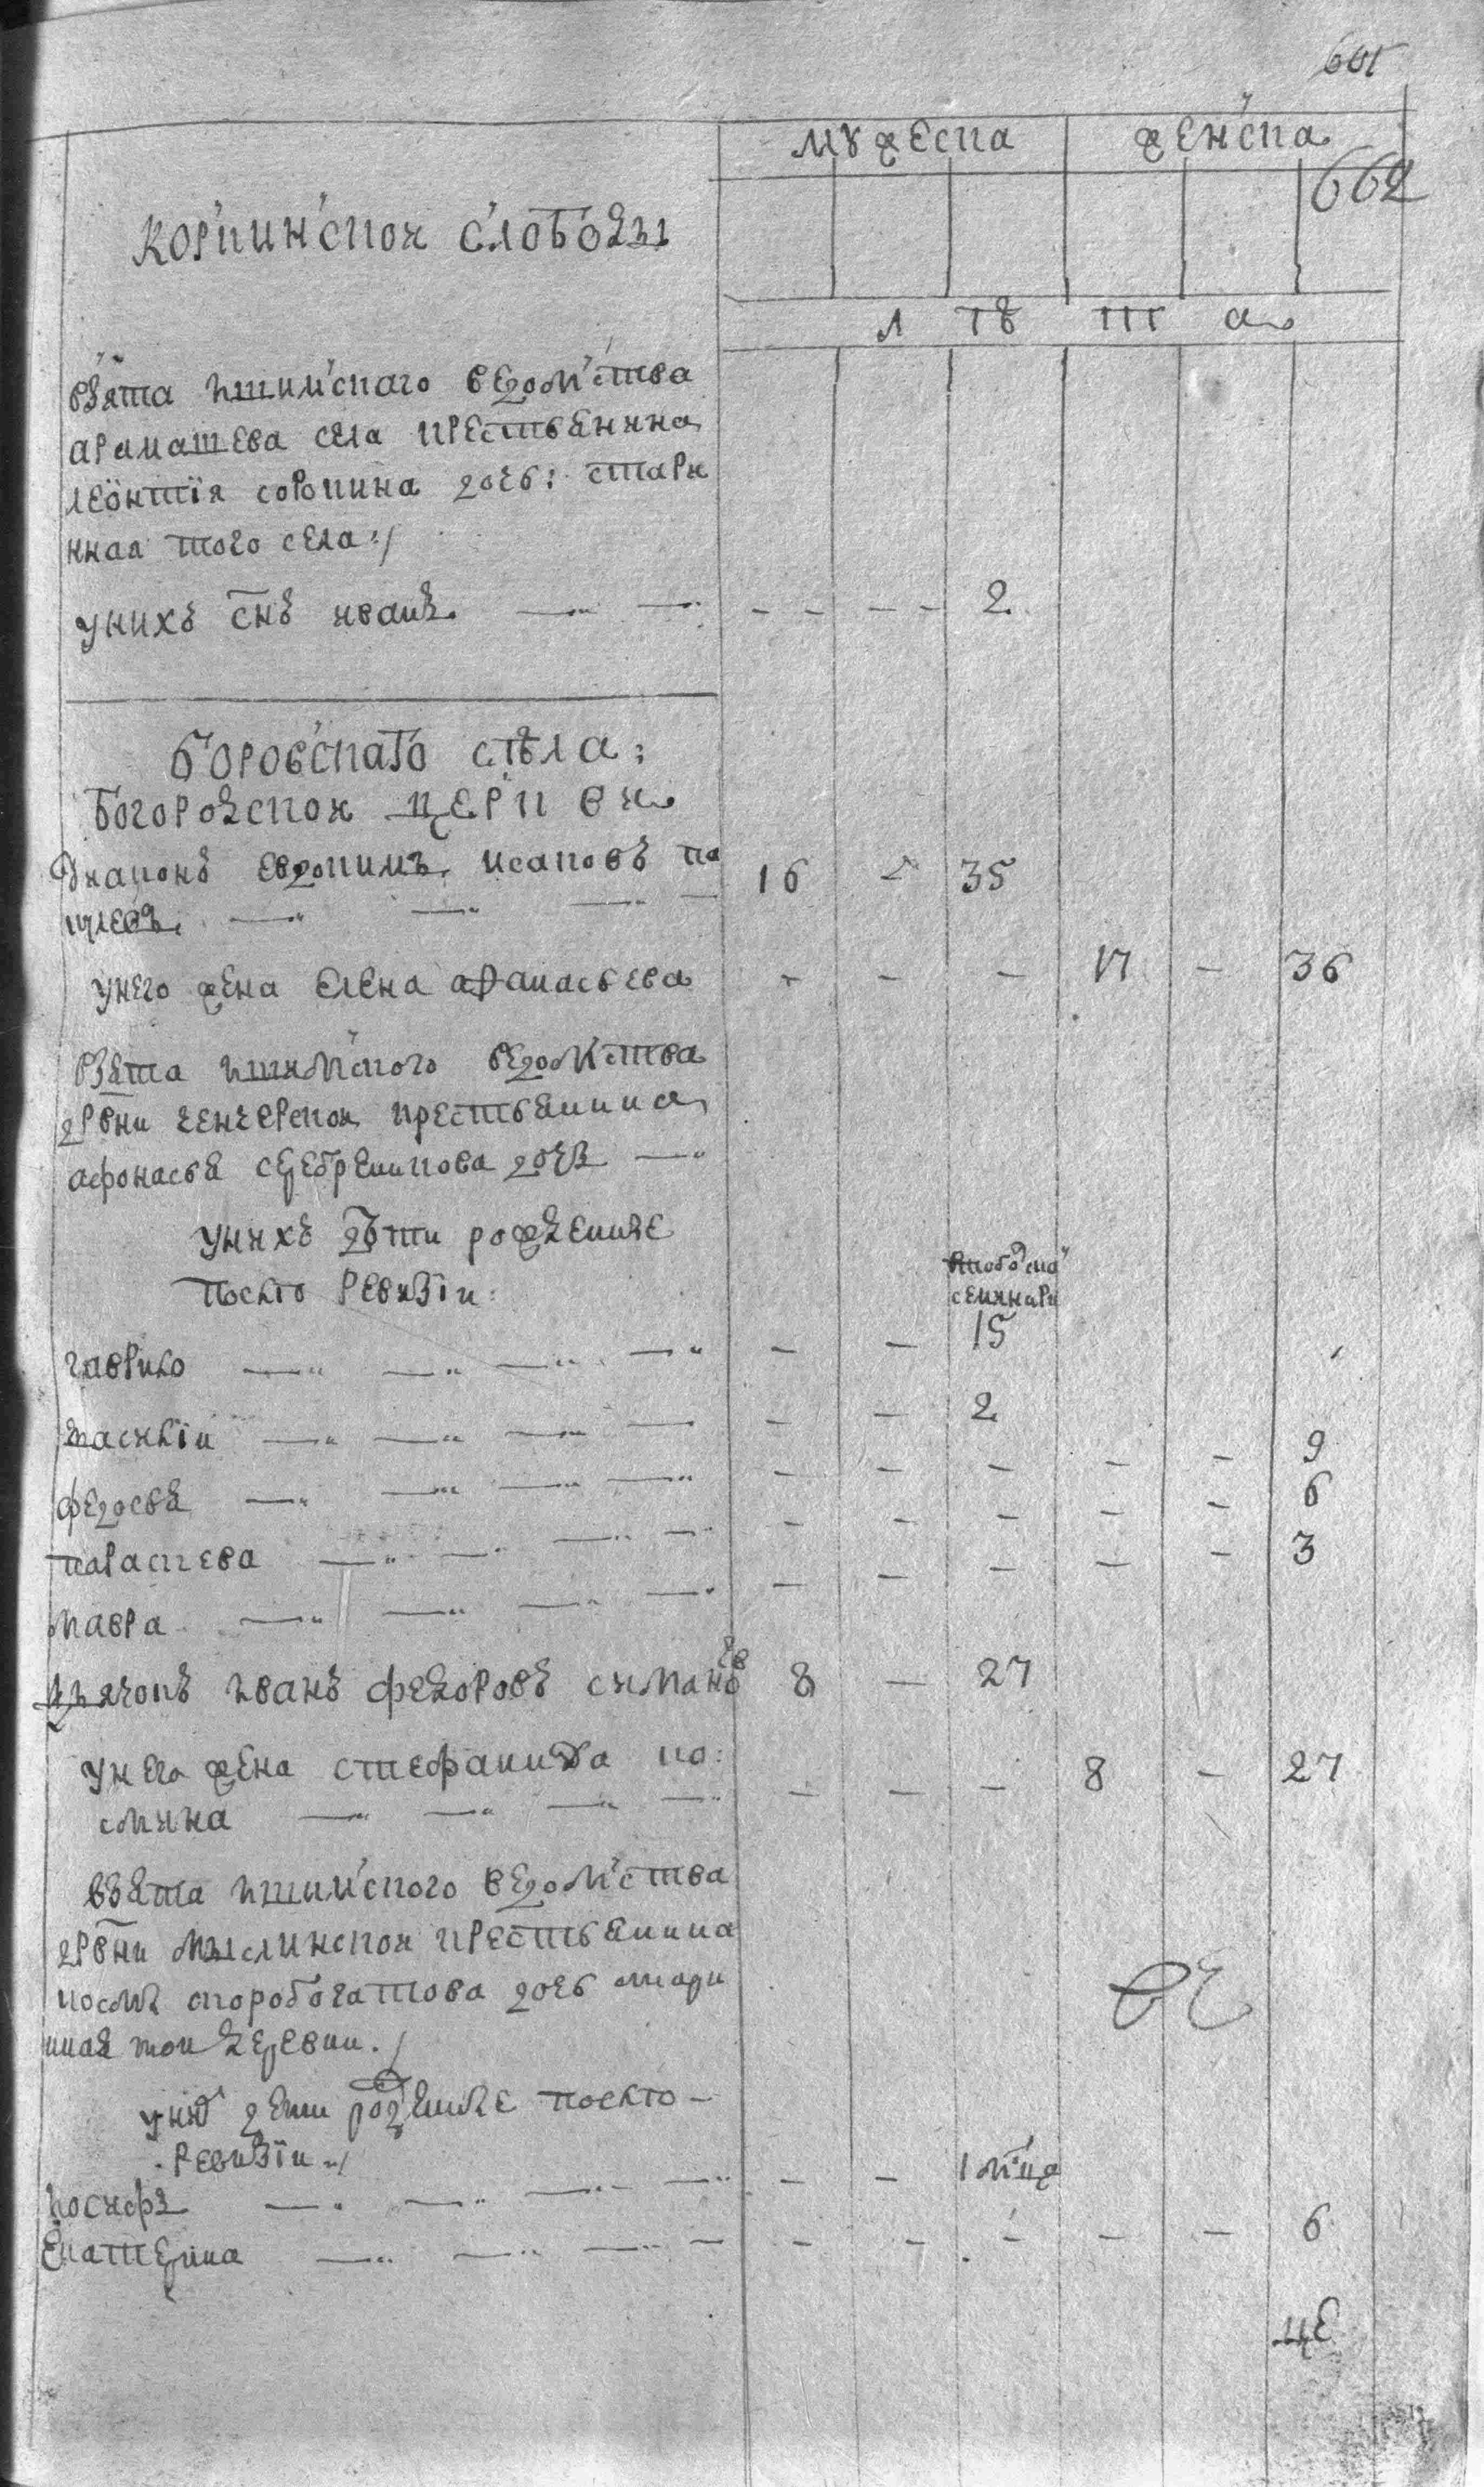 601
мужеска женска
662
Коркинской слободы
л тъ т а
взята ишимскаго ведомства
арамашева села крестьянина
леонтїя сорокина дочь: стари
нная того села:/
у нихъ снъ иванъ 2
Боровскаго села:
Богородской церкви
Диаконъ евдокимъ исаковъ по
16 35
у него жена елена афанасьева 17 36
взята ишимского ведомства
дрвни крестьянина
афонасья серебреникова дочь
у нихъ дѣти рожденные
после ревизїи:
в тобоской
семинари
гаврило 15
василїи 2
федосья 9
параскева 6
мавра 3
дьячокъ иванъ федоровъ симановъ 8 27
у него жена стефанида ко:
смина 8 27
взята ишимского ведомства
дрвни мыслинской крестьянина
космы скоробогатова дочь стари
нная тои деревни./
у нихъ дети рожденные после
ревизїи
иосифъ 1 мсца
екатерина 6
це